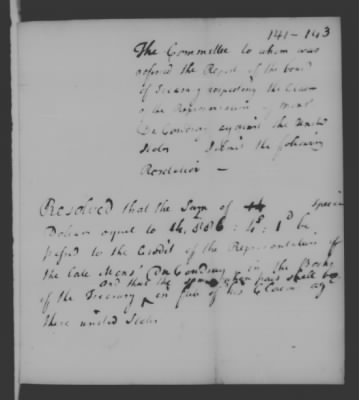 141-143
The Committee to whom was
refered the Report of the board
of Treasury respecting the Claim
of the Representative of Mons'
De Coudray against the United
States Submit the following
Resolution —
Resolved that the Sum of Specie
Dollars equal to : 4s : 1d be
passed to the Credit of the Representatives of
the late Mons' Du Coudray in the Books
and that the when paid shall be
of the Treasury in full of his Claim agt
these united States